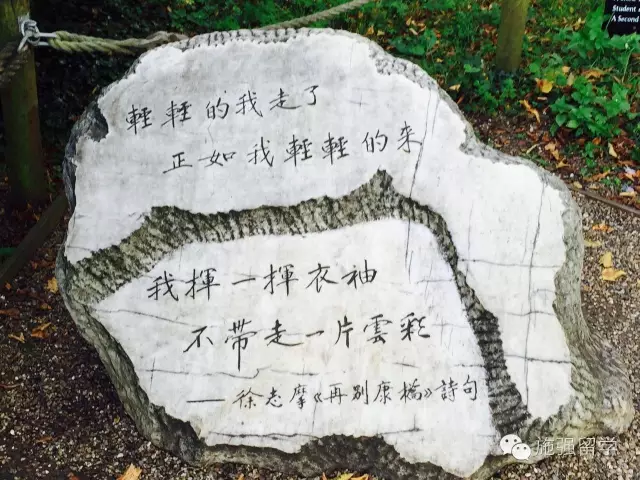 Student
A Second
輕輕的我走了
正如我輕輕的來
我揮一揮衣袖
不帶走一片雲彩
——徐志摩《再別康橋》詩句
施强留学